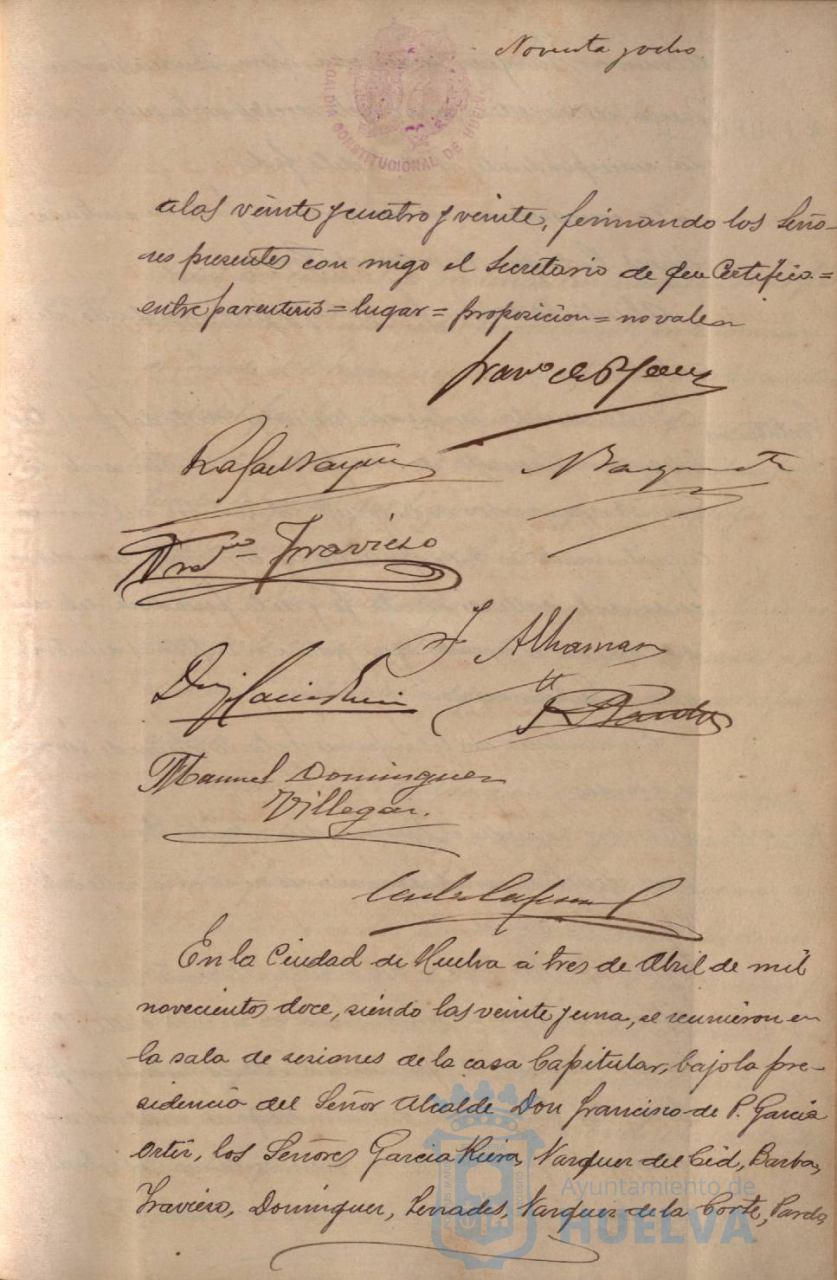 Noventa y ocho
ALCALDIA CONSTITUCIONAL DE HUELVA
a las veinte y cuatro y veinte, firmando los Seño-
res presentes con migo el Secretario de que Certifico =
entre parentesis = lugar = proposicion = no valen
Franco de P. Garcia
Rafael Vazquez
Franco Travieso
J Alhaman
R Pardo
Manuel Dominguez
Villegas.
En la Ciudad de Huelva á tres de Abril de mil
novecientos doce, siendo las veinte y una, se reunieron en
la sala de sesiones de la casa Capitular, bajo la pre-
sidencia del Señor Alcalde Don Francisco de P. Garcia
Ortiz, los Señores Garcia Riera, Vazquez del Cid, Barba,
Travieso, Dominguez, Serrades, Vazquez de la Corte, Pardo
Ayuntamiento de
HUELVA